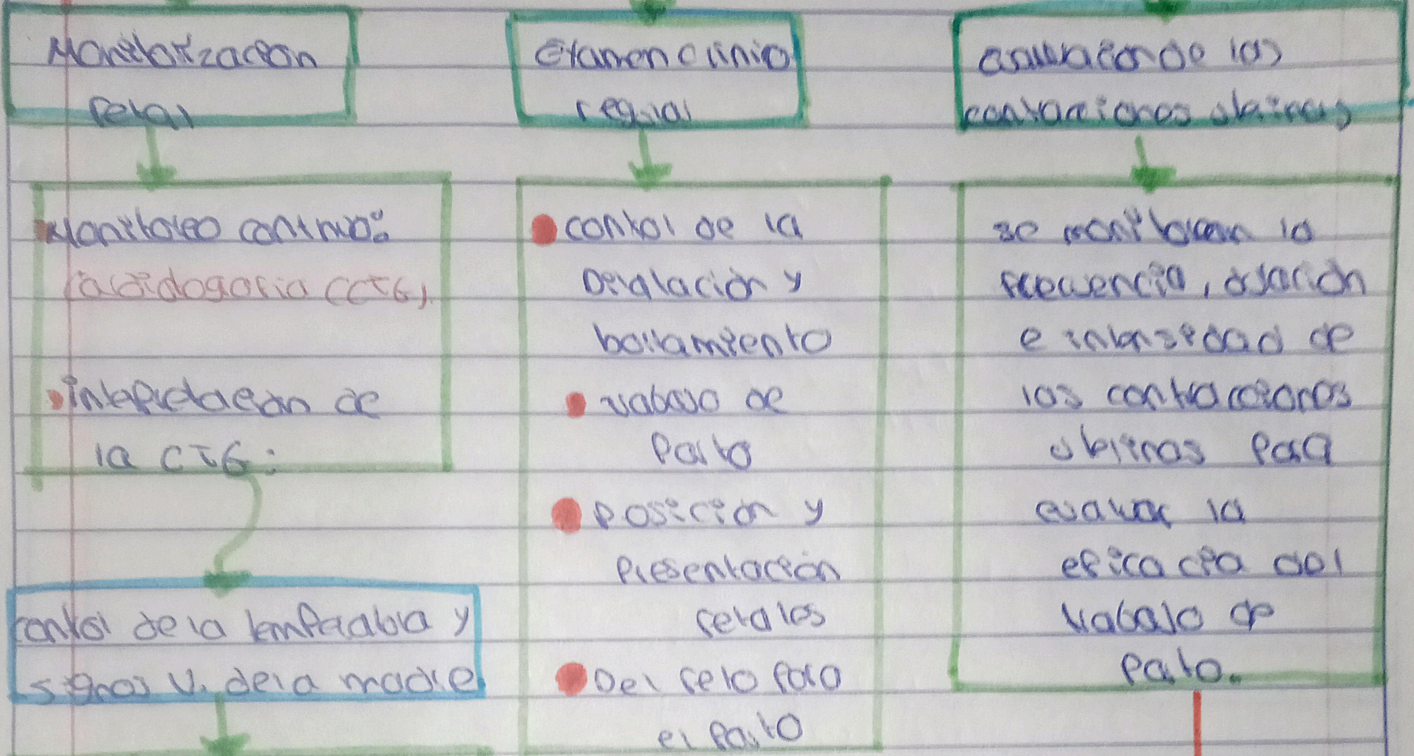 Monitorización
fetal
Monitoreo continuo:
(CTG).
Interpretacion de
la CTG:
control de la temperatura y
signos V. de la madre
Examen clinico
regular
control de la
Dilatación y
borramiento
trabajo de
Parto
Posición y
Presentación
fetales
Del feto para
el Parto
evaluacion de las
contracciones uterinas
se monitorean la
frecuencia, duración
e intensidad de
las contracciones
uterinas para
evaluar la
eficacia del
trabajo de
Parto.